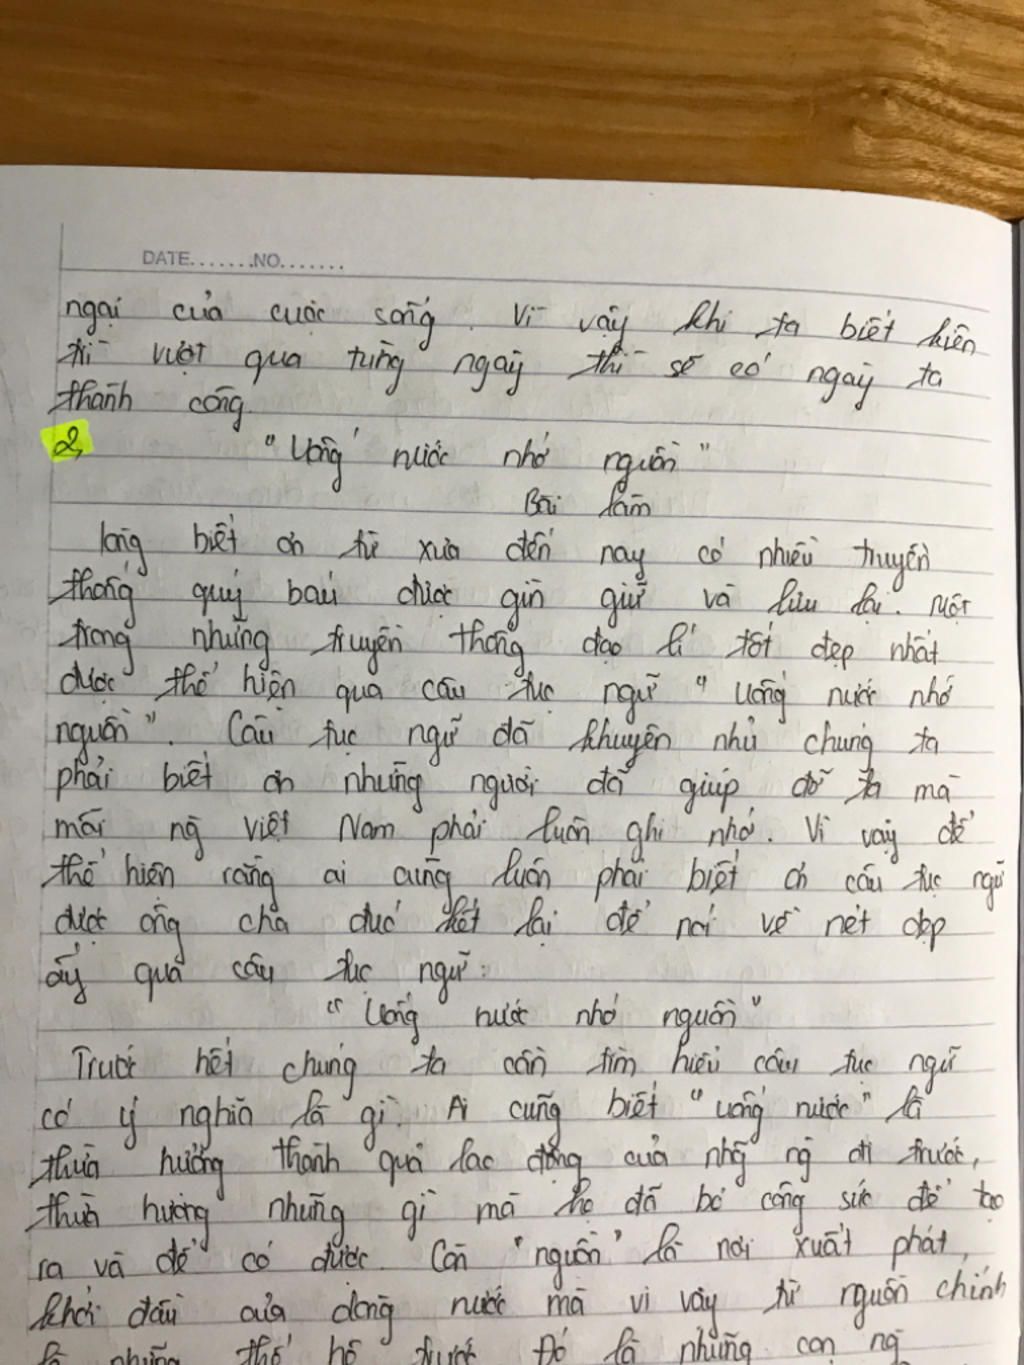 DATE.......NO.......
ngại của cuộc sống. Vì vậy khi ta biết kiên
trì vượt qua từng ngày thì sẽ có ngày ta
thành công.
2,
"Uống nước nhớ nguồn"
Bài làm
lòng biết ơn từ xưa đến nay có nhiều truyền
thống quý báu được gìn giữ và lưu lại. Một
trong những truyền thống đạo lí tốt đẹp nhất
được thể hiện qua câu tục ngữ "uống nước nhớ
nguồn". Câu tục ngữ đã khuyên nhủ chúng ta
phải biết ơn những người đã giúp đỡ ta mà
mỗi ng việt Nam phải luôn ghi nhớ. Vì vậy để
thể hiện rằng ai cũng luôn phải biết ơn câu tục ngữ
được ông cha đúc kết lại để nói về nét đẹp
ấy qua câu tục ngữ:
"Uống nước nhớ nguồn"
Trước hết chúng ta cần tìm hiểu câu tục ngữ
có ý nghĩa là gì. Ai cũng biết "uống nước" là
thừa hưởng thành quả lao động của nhg ng đi trước,
thừa hưởng những gì mà họ đã bỏ công sức để tạo
ra và để có được. Còn "nguồn" là nơi xuất phát,
khởi đầu của dòng nước mà vì vậy từ nguồn chính
là những thế hệ trước. Đó là những con ng